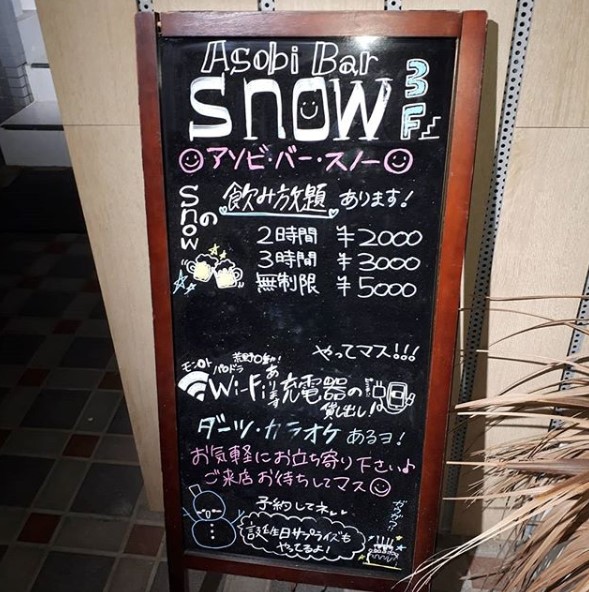 Asobi Bar
snow 3F
アソビ・バー・スノー
snowの
飲み放題 あります!
2時間 ¥2000
3時間 ¥3000
無制限 ¥5000
やってマス!!!
モンスト パズドラ 荒野
Wi-Fiあります
充電器の貸し出し
ダーツ・カラオケ あるヨ!
お気軽にお立ち寄り下さい♪
ご来店お待ちしてマス
予約してネ
誕生日サプライズも
やってるよ!